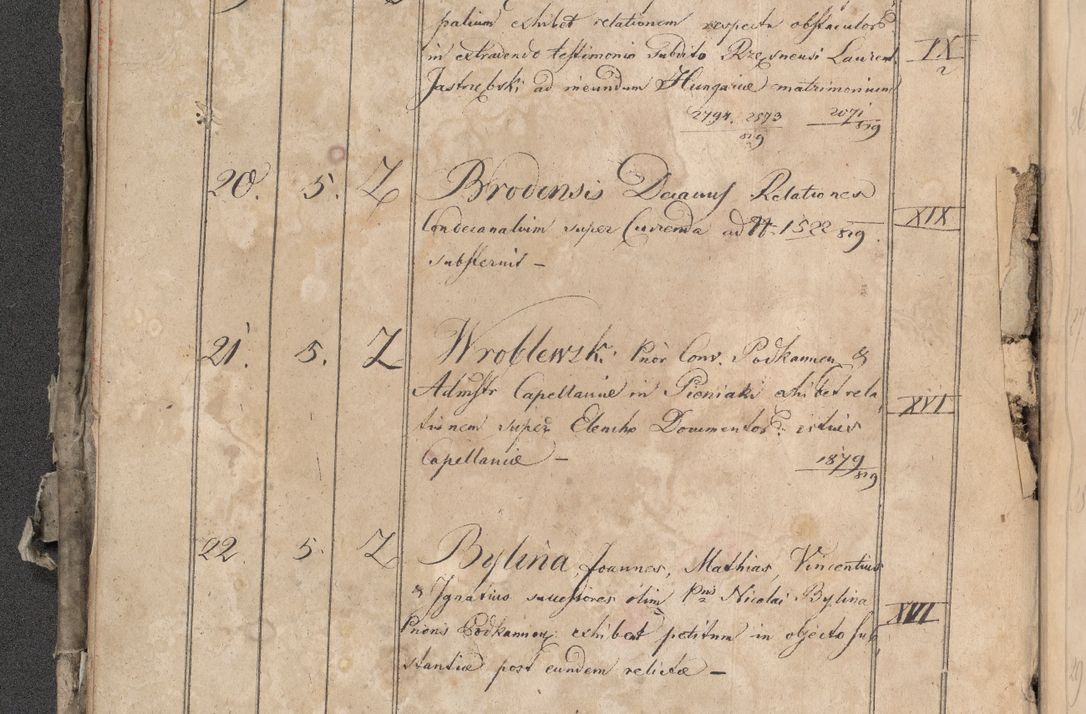 palium exhibet relationem respectu obstaculor
in extradendo testimonio Subdito Rzęsneusi Laurent.
Jastrzębski ad ineundum Hungariæ matrimonium
2794. 2573 2071
819 819
IX
2
20. 5. Z Brodensis Decanus Relationes
Condecanalium super Currenda ad N. 1522 819.
substernit –
XIX
21. 5. Z Wroblewski Prior Conv. Podkamien. &
Admstr Capellaniæ in Pieniaki exhibet rela
tionem super Elencho Documentor. istius
Capellaniæ –
1879
819
XVI
22. 5. Z Bylina Joannes, Mathias, Vincentius
& Ignatius successores olim Nicolai Bylina
Prioris Podkamien exhibet petitum in objecto Sub
stantiæ post eundem relictæ –
XVI